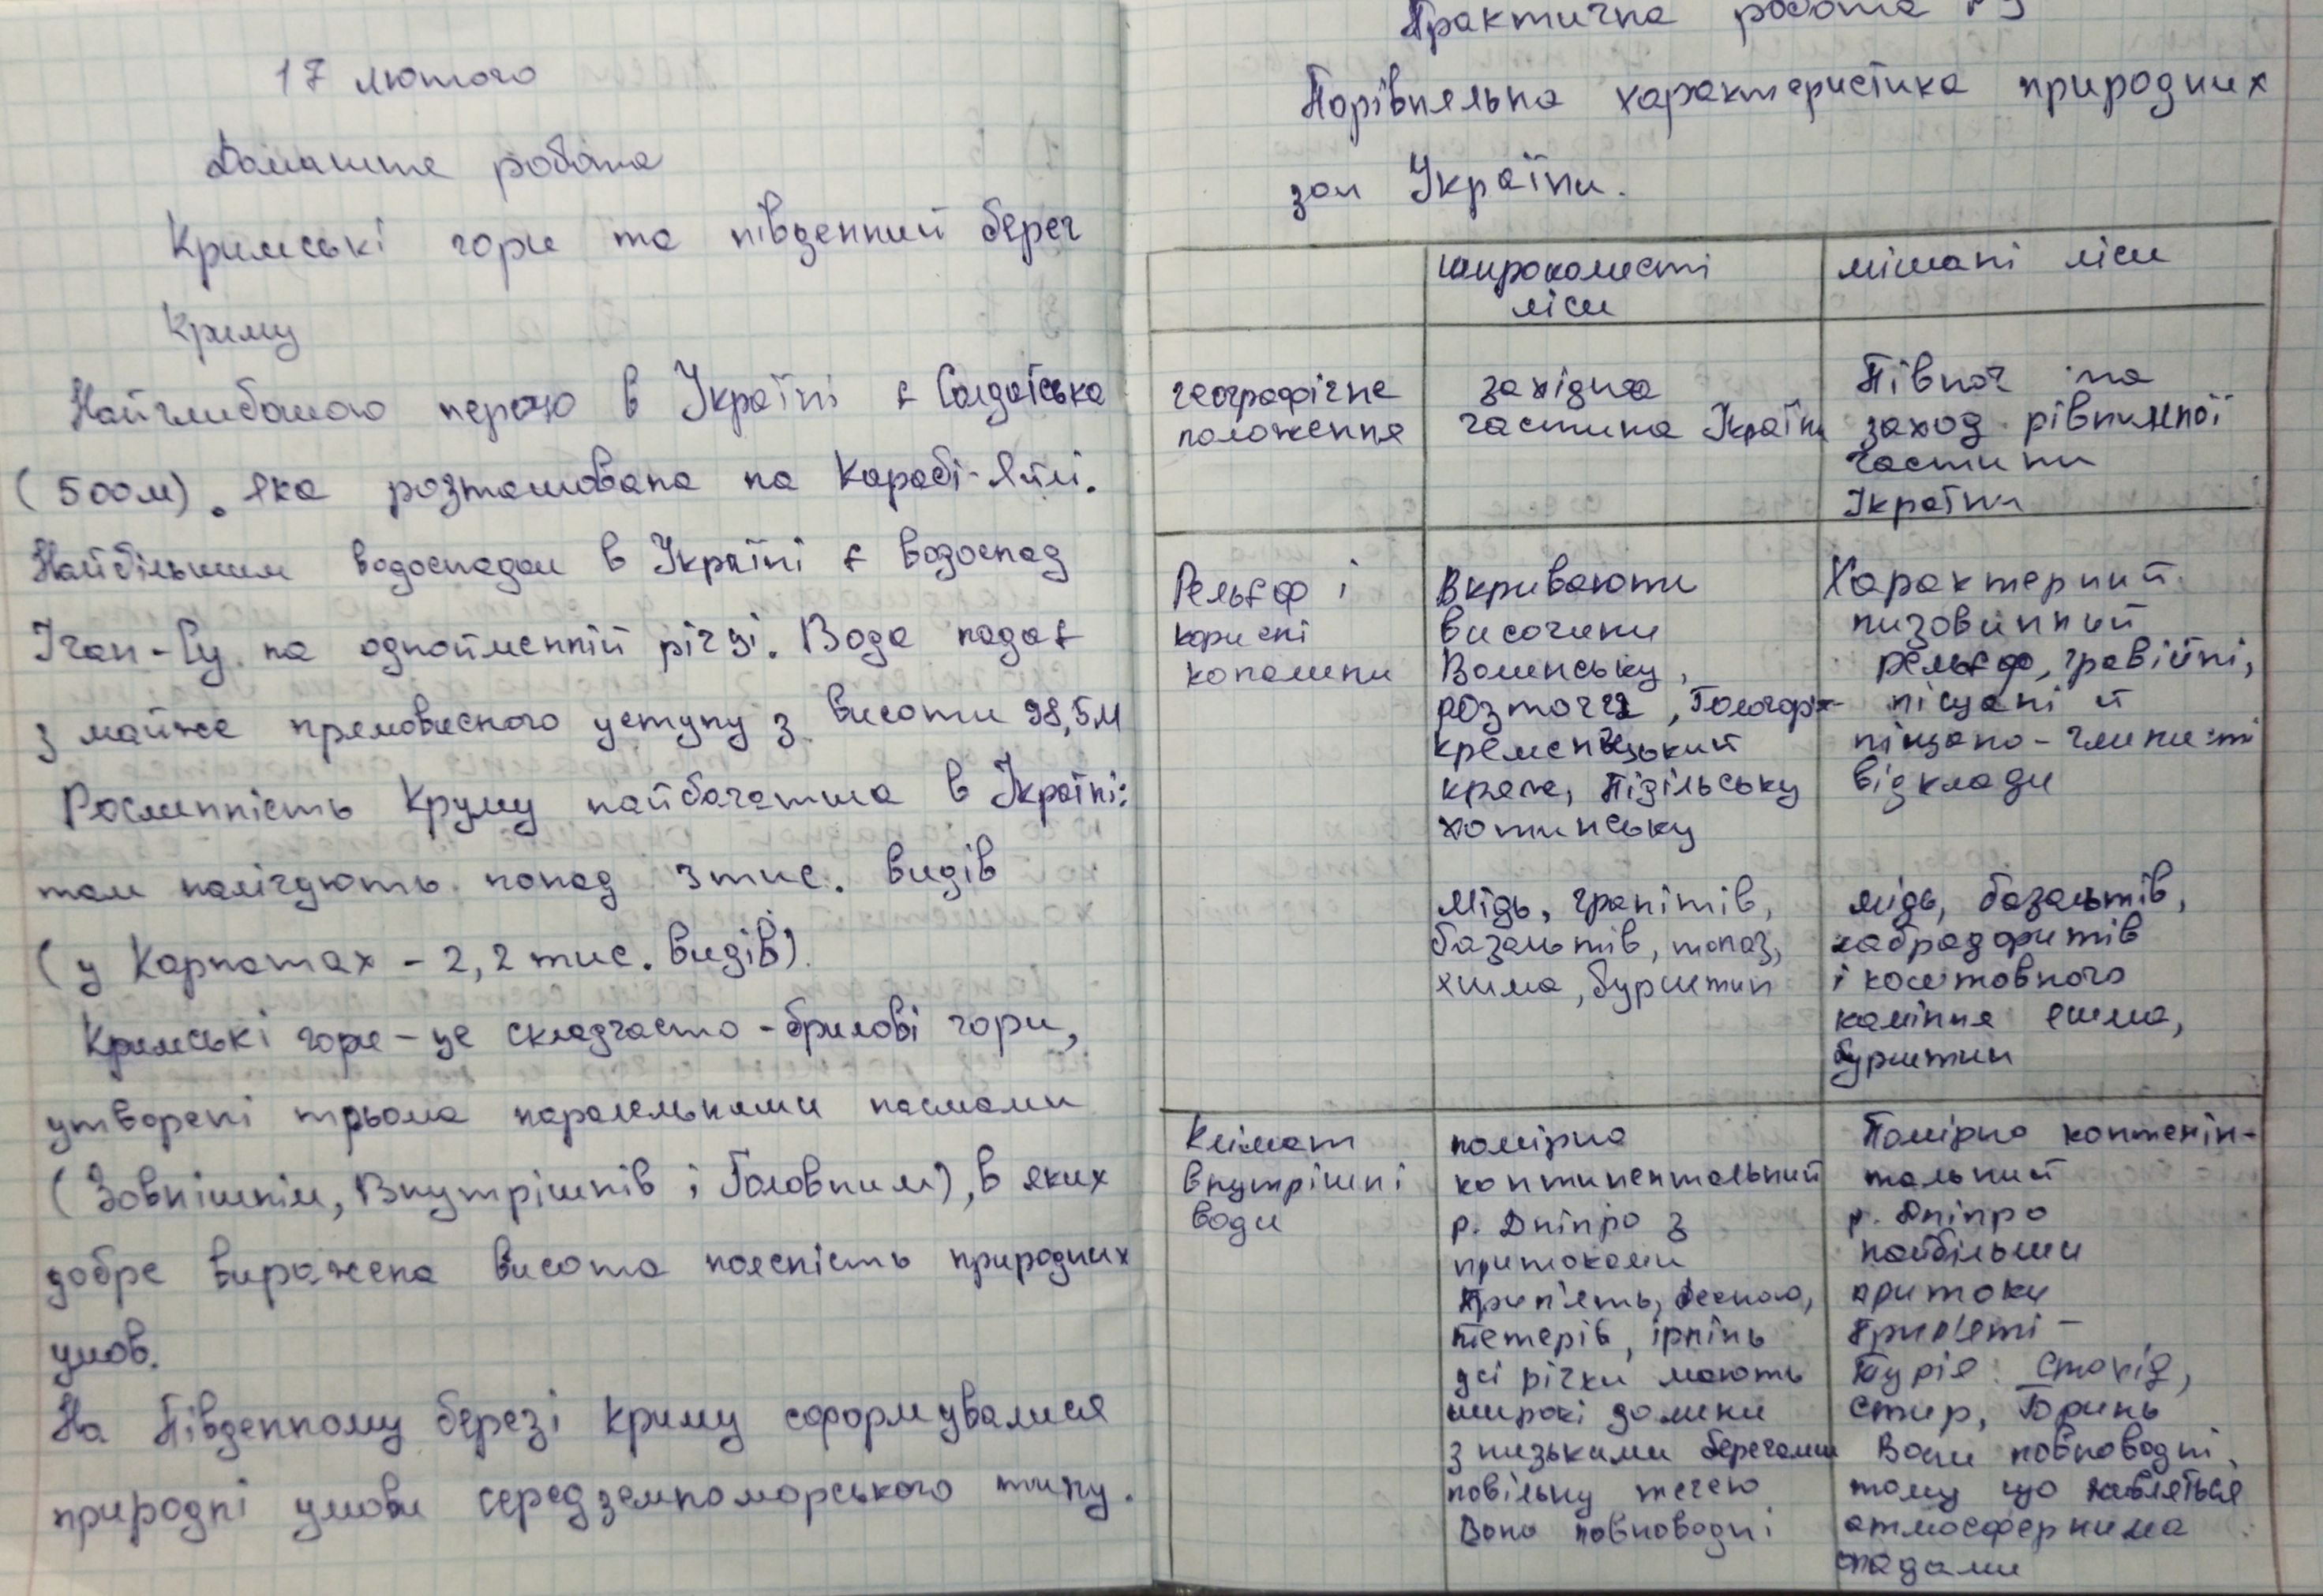 17 лютого
Домашня робота
Кримські гори та південний берег
Криму
Найглибшою перою в Україні є Солдатська
(500м). яка розташована на Карабі-Яйлі.
Найбільшим водоспадом в Україні є водоспад
Учан-Су на однойменній річці. Вода падає
з майже прямовисного уступу з висоти 98,5м
Рослинність Круму найбагатша в Україні:
там налічують понад 3 тис. видів
(у Карпатах - 2,2 тис. видів).
Кримські гори - це складчасто-брилові гори,
утворені трьома паралельними пасмами
(Зовнішнім, Внутрішнів і Головним), в яких
добре виражена висота поясність природних
умов.
На Південному березі Криму сформувалися
природні умови середземноморського типу.
Практична робота
Порівняльна характеристика природних
зон України.
широколисті
ліси
мішані ліси
географічне
положення
західна
частина України
Північ та
захоД рівнинної
частини
України
Рельєф і
корисні
копалини
Вкривають
височини
Волинську,
розточчя, Гологоро-
кременецький
кряж, Підільську
хотинську
Мідь, гранітів,
базальтів, топаз,
яшма, бурштин
Характерний
низовинний
рельєф, гравійні,
піщані й
піщано-глинисті
відклади
мідь, базальтів,
лабрадоритів
і коштовного
каміння яшма,
бурштин
Клімат
внутрішні
води
помірно
континентальний
р. Дніпро з
притоками
Прип'ять, Десною,
тетерів, ірпінь
усі річки мають
широкі долини
з низькими берегами
повільну течею
Вона повноводні
Помірно контенін-
тальний
р. Дніпро
найбільши
притоки
Прип'яті -
Турія: Стохід,
Стир, Горинь
Вони повноводні,
тому що живляться
атмосферними
опадами